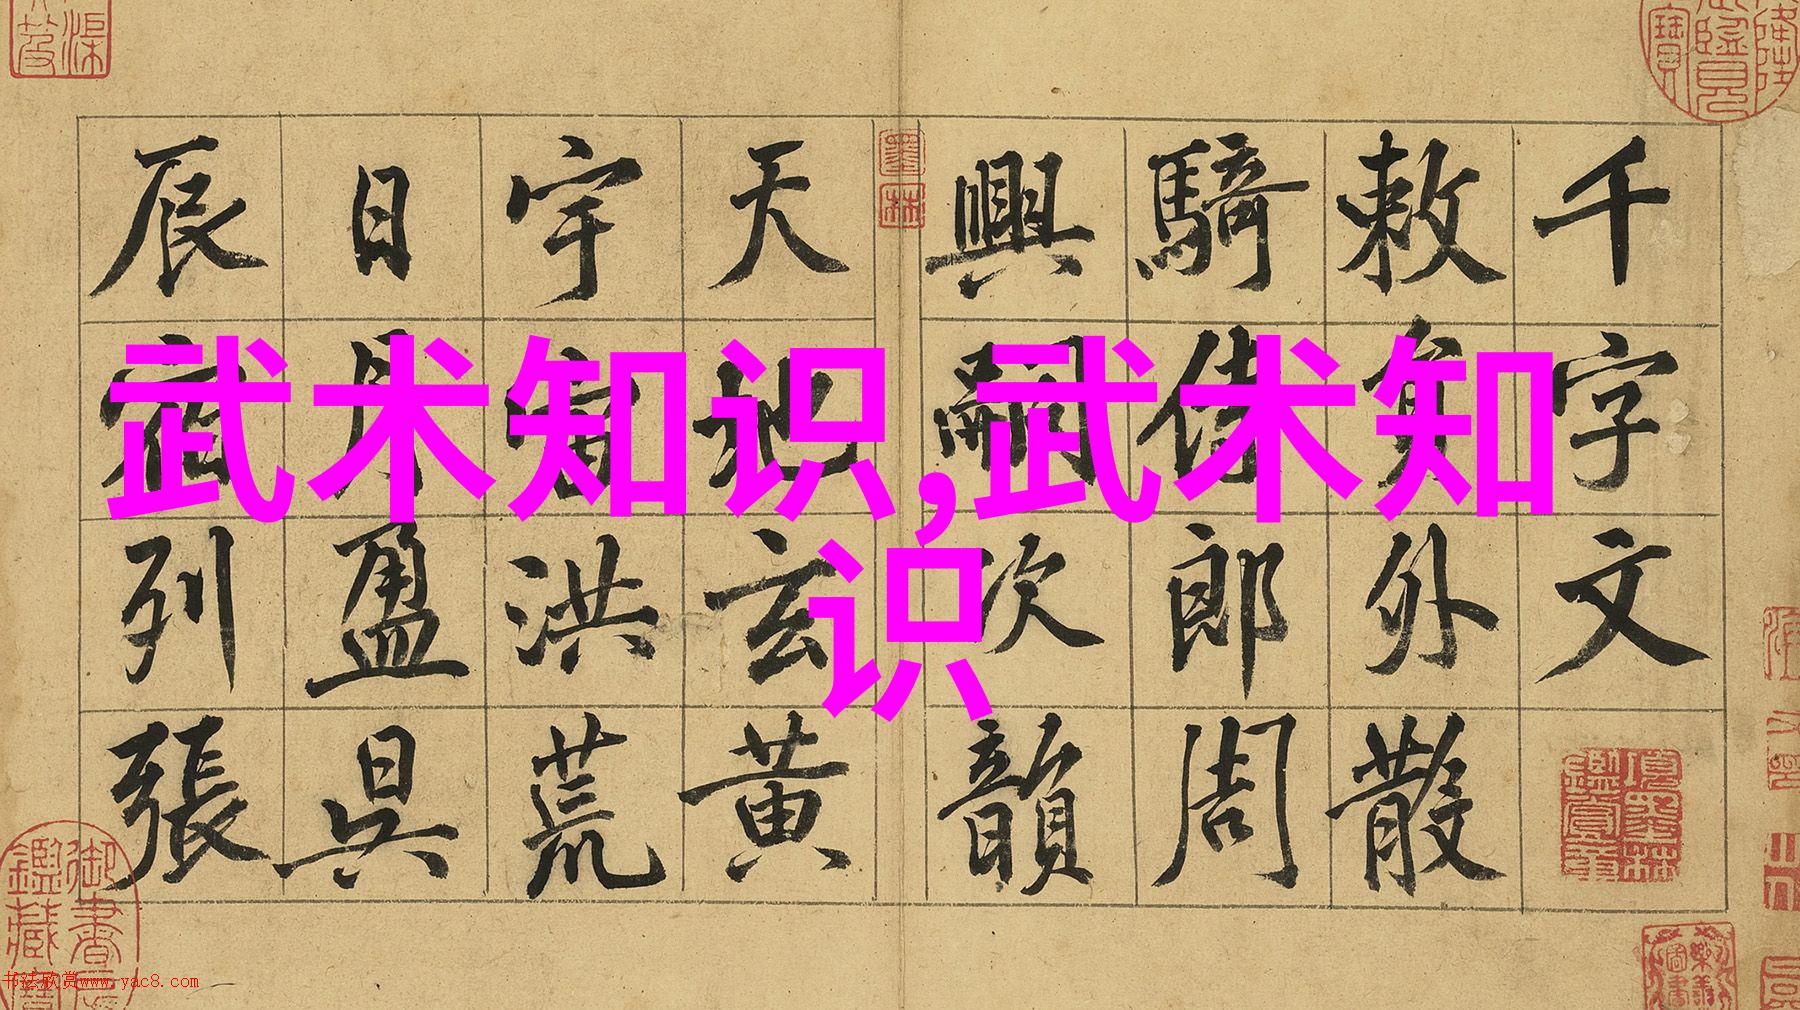 武术知识,武术知
识
千字文
敕員外散
騎侍郎周
興嗣次韻
天地玄黄
宇宙洪荒
日月盈昃
辰宿列張
墨林
項墨林鑑賞章
书法欣赏www.yac8.com